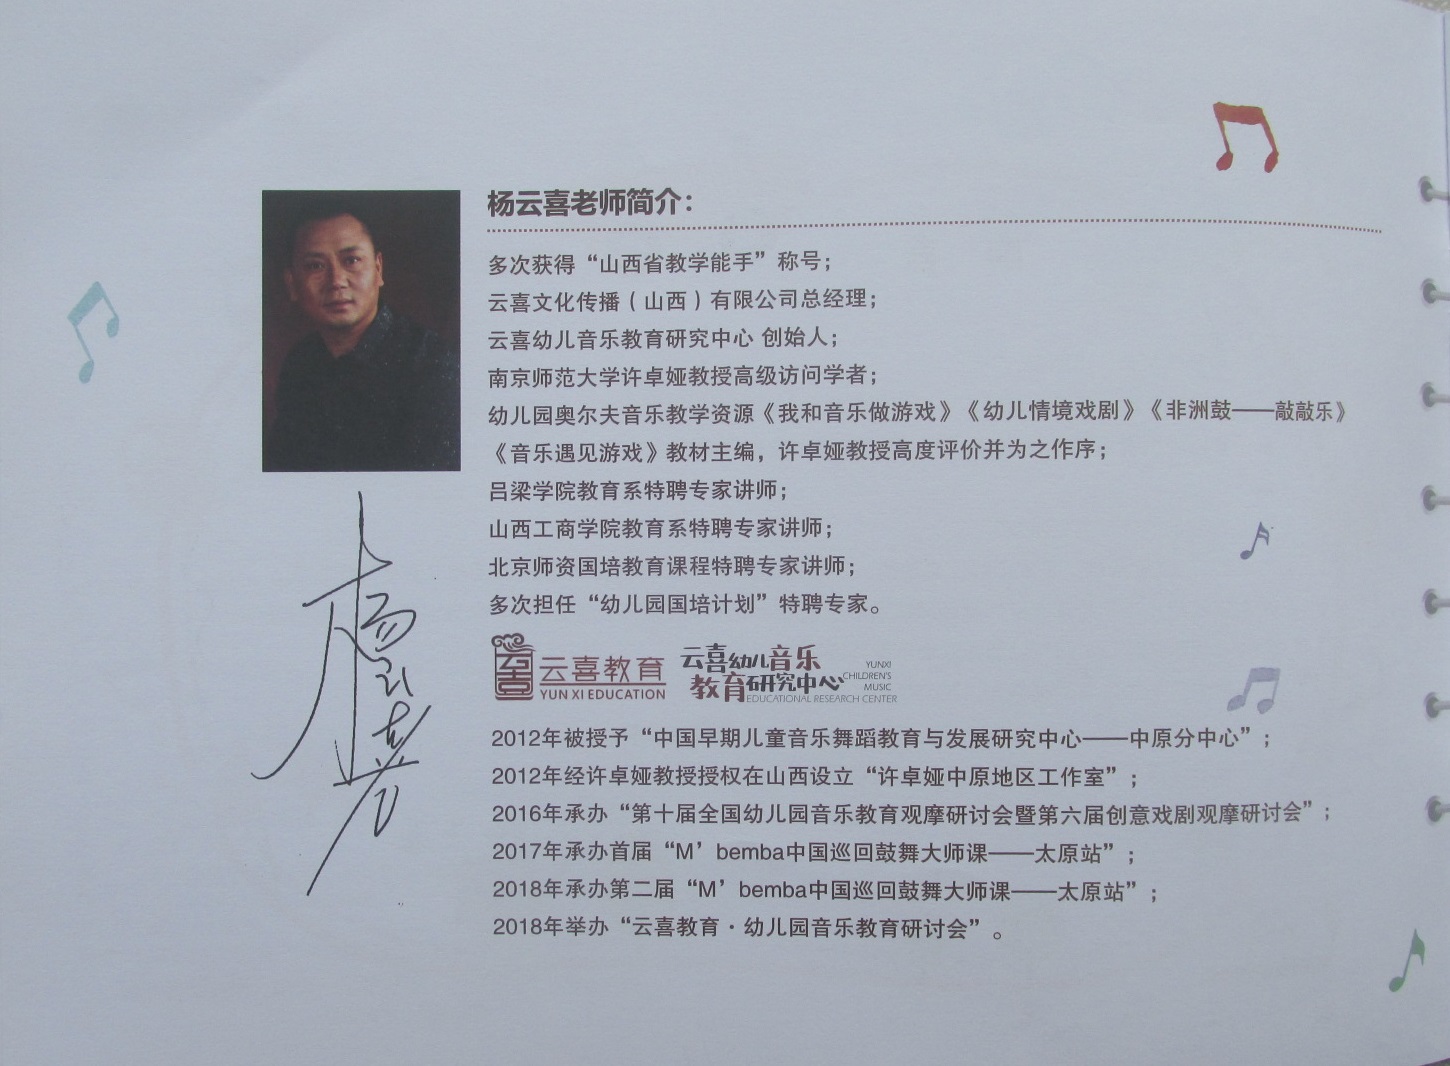 杨云喜老师简介：
多次获得“山西省教学能手”称号；
云喜文化传播（山西）有限公司总经理；
云喜幼儿音乐教育研究中心 创始人；
南京师范大学许卓娅教授高级访问学者；
幼儿园奥尔夫音乐教学资源《我和音乐做游戏》《幼儿情境戏剧》《非洲鼓——敲敲乐》
《音乐遇见游戏》教材主编，许卓娅教授高度评价并为之作序；
吕梁学院教育系特聘专家讲师；
山西工商学院教育系特聘专家讲师；
北京师资国培教育课程特聘专家讲师；
多次担任“幼儿园国培计划”特聘专家。
杨云喜
云喜
云喜教育
YUN XI EDUCATION
云喜幼儿音乐
教育研究中心
YUNXI
CHILDREN'S
MUSIC
EDUCATIONAL RESEARCH CENTER
2012年被授予“中国早期儿童音乐舞蹈教育与发展研究中心——中原分中心”；
2012年经许卓娅教授授权在山西设立“许卓娅中原地区工作室”；
2016年承办“第十届全国幼儿园音乐教育观摩研讨会暨第六届创意戏剧观摩研讨会”；
2017年承办首届“M’bemba中国巡回鼓舞大师课——太原站”；
2018年承办第二届“M’bemba中国巡回鼓舞大师课——太原站”；
2018年举办“云喜教育·幼儿园音乐教育研讨会”。